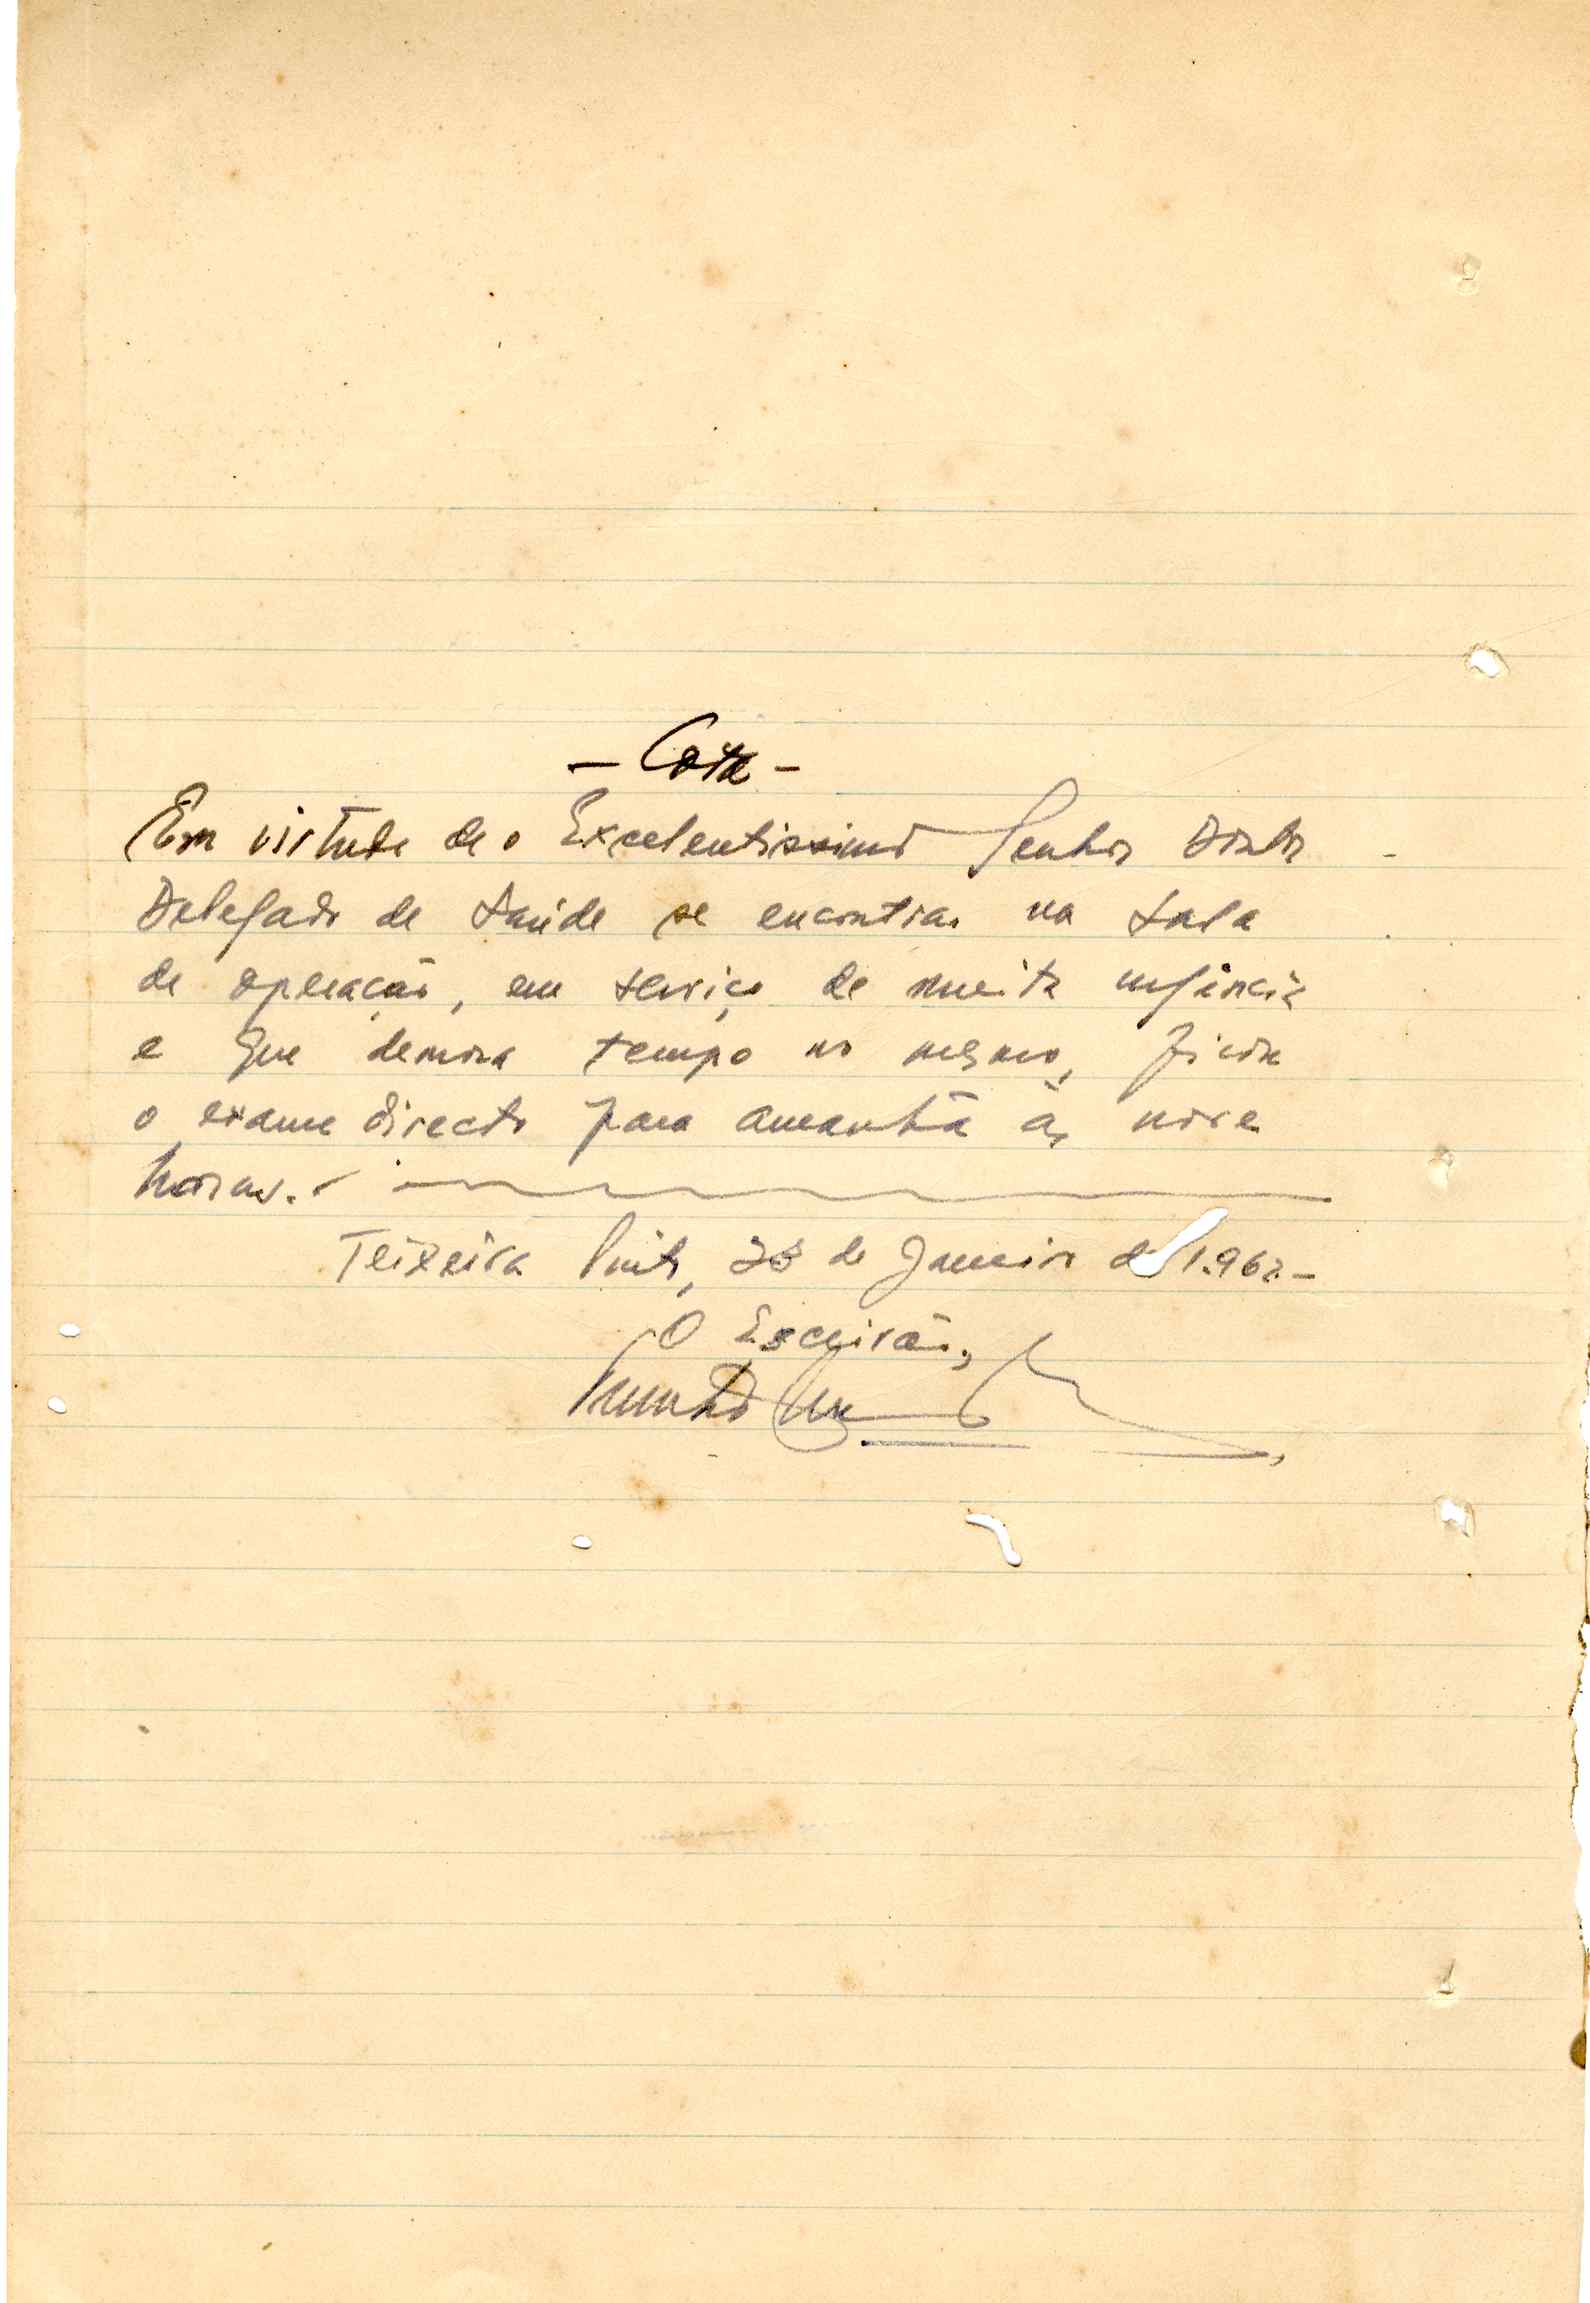 - Cota -
Em virtude de o Excelentissimo Senhor Doutor
Delegado de Saúde se encontrar na sala
de operação, em serviço de muita urgência
e que demora tempo no mesmo, ficou
o exame directo para amanhã às nove
horas.-
Teixeira Pinto, de Janeiro de 1.962.-
O Escrivão,